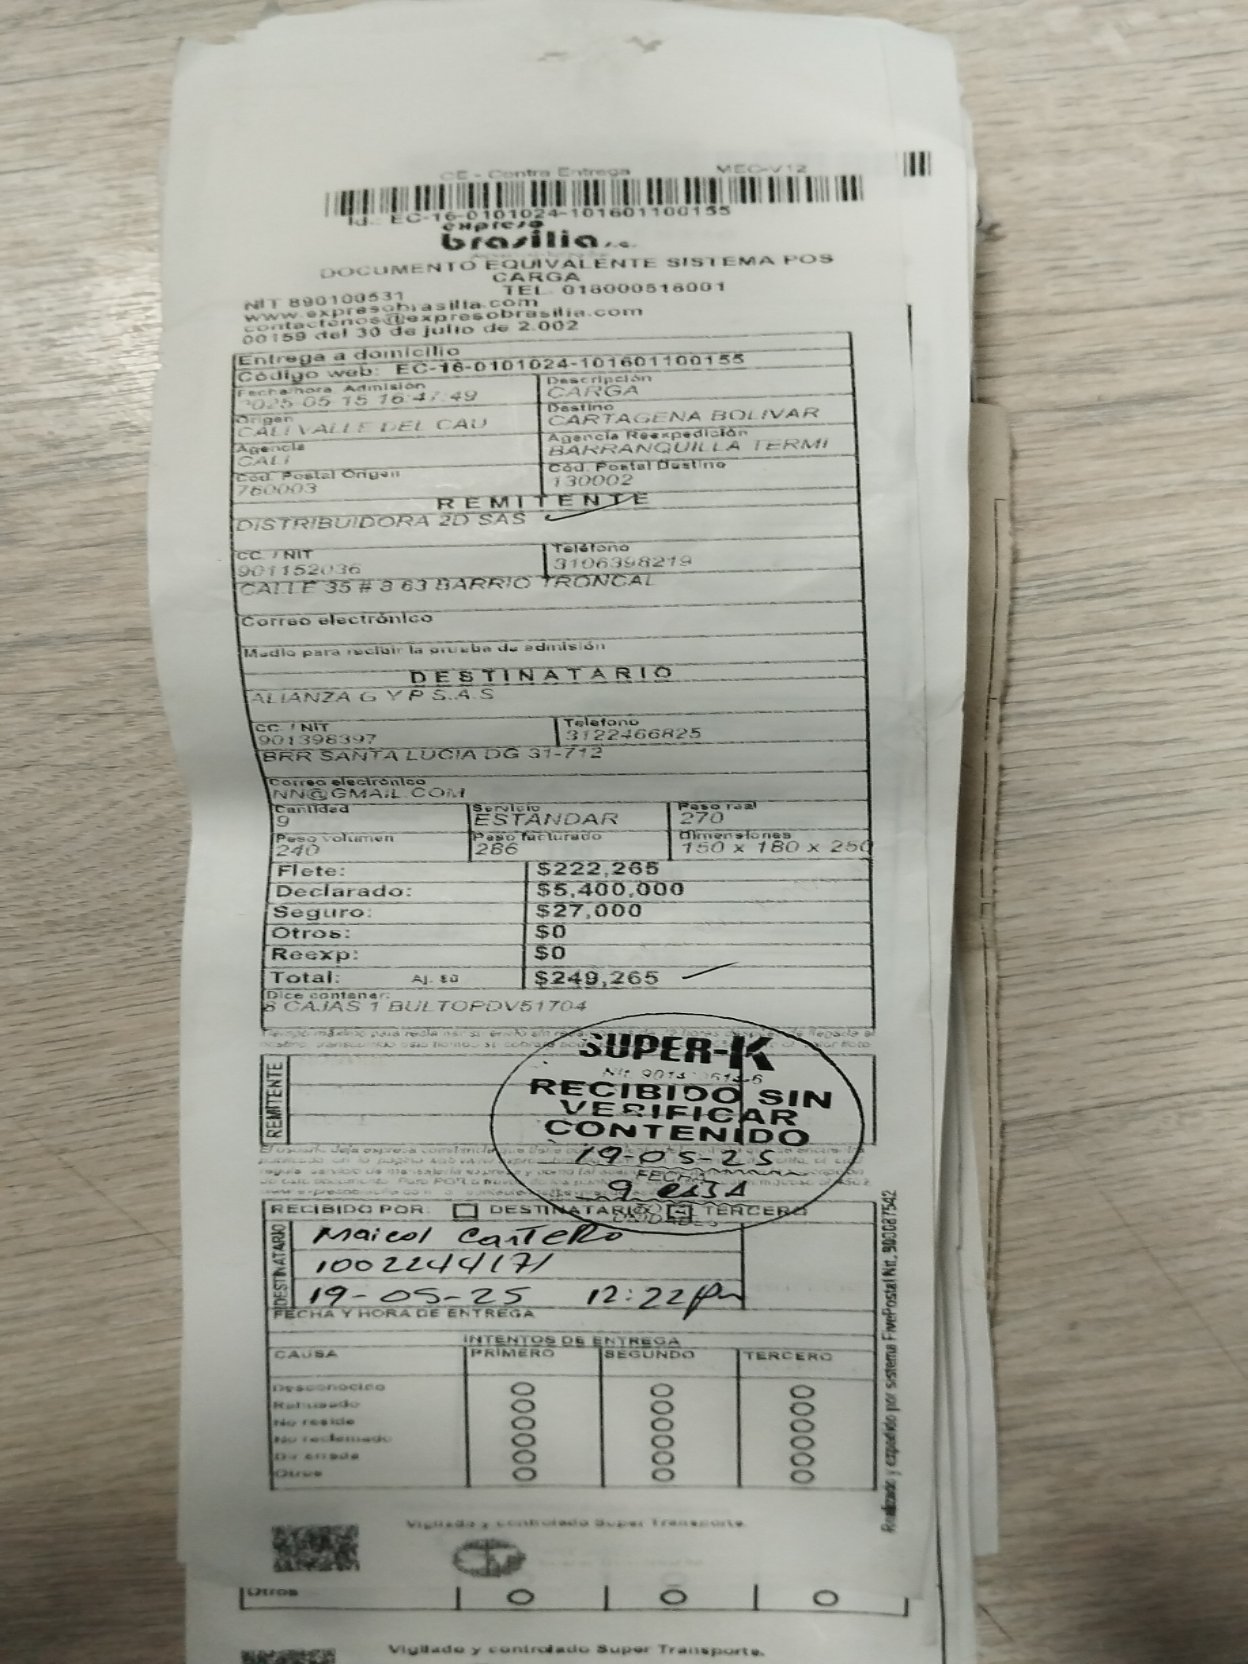 CE - Contra Entrega MEC-V12
Id.: EC-16-0101024-101601100155
expreso
brasilia s.a.
DOCUMENTO EQUIVALENTE SISTEMA POS
CARGA
NIT 890100531 TEL. 018000516001
www.expresobrasilia.com
contactenos@expresobrasilia.com
00159 del 30 de julio de 2.002
Entrega a domicilio
Código web: EC-16-0101024-101601100155
Fecha/hora Admisión Descripción
2025-05-15 16:47:49 CARGA
Origen Destino
CALI VALLE DEL CAU CARTAGENA BOLIVAR
Agencia Agencia Reexpedición
CALI BARRANQUILLA TERMI
Cód. Postal Origen Cód. Postal Destino
760003 130002
REMITENTE
DISTRIBUIDORA 2D SAS
CC. / NIT Teléfono
901152036 3106398219
CALLE 35 # 8 63 BARRIO TRONCAL
Correo electrónico
Medio para recibir la prueba de admisión
DESTINATARIO
ALIANZA G Y P S.A.S
CC. / NIT Teléfono
901398397 3122466825
BRR SANTA LUCIA DG 31-712
Correo electrónico
NN@GMAIL.COM
Cantidad Servicio Peso real
9 ESTANDAR 270
Peso volumen Peso facturado Dimensiones
240 286 150 x 180 x 250
Flete: $222,265
Declarado: $5,400,000
Seguro: $27,000
Otros: $0
Reexp: $0
Total: Aj. $0 $249,265
Dice contener:
8 CAJAS 1 BULTOPDV51704
REMITENTE
SUPER-K
RECIBIDO SIN
VERIFICAR
CONTENIDO
19-05-25
FECHA
9
UNIDADES
RECIBIDO POR: DESTINATARIO TERCERO
DESTINATARIO
Maicol Cantero
1002244171
19-05-25 12:22 pm
FECHA Y HORA DE ENTREGA
INTENTOS DE ENTREGA
CAUSA PRIMERO SEGUNDO TERCERO
Desconocido
Rehusado
No reside
No reclamado
Dir errada
Otros
Realizado y expedido por sistema FivePostal Nit. 900087542
Vigilado y controlado Super Transporte.
Otros
Vigilado y controlado Super Transporte.